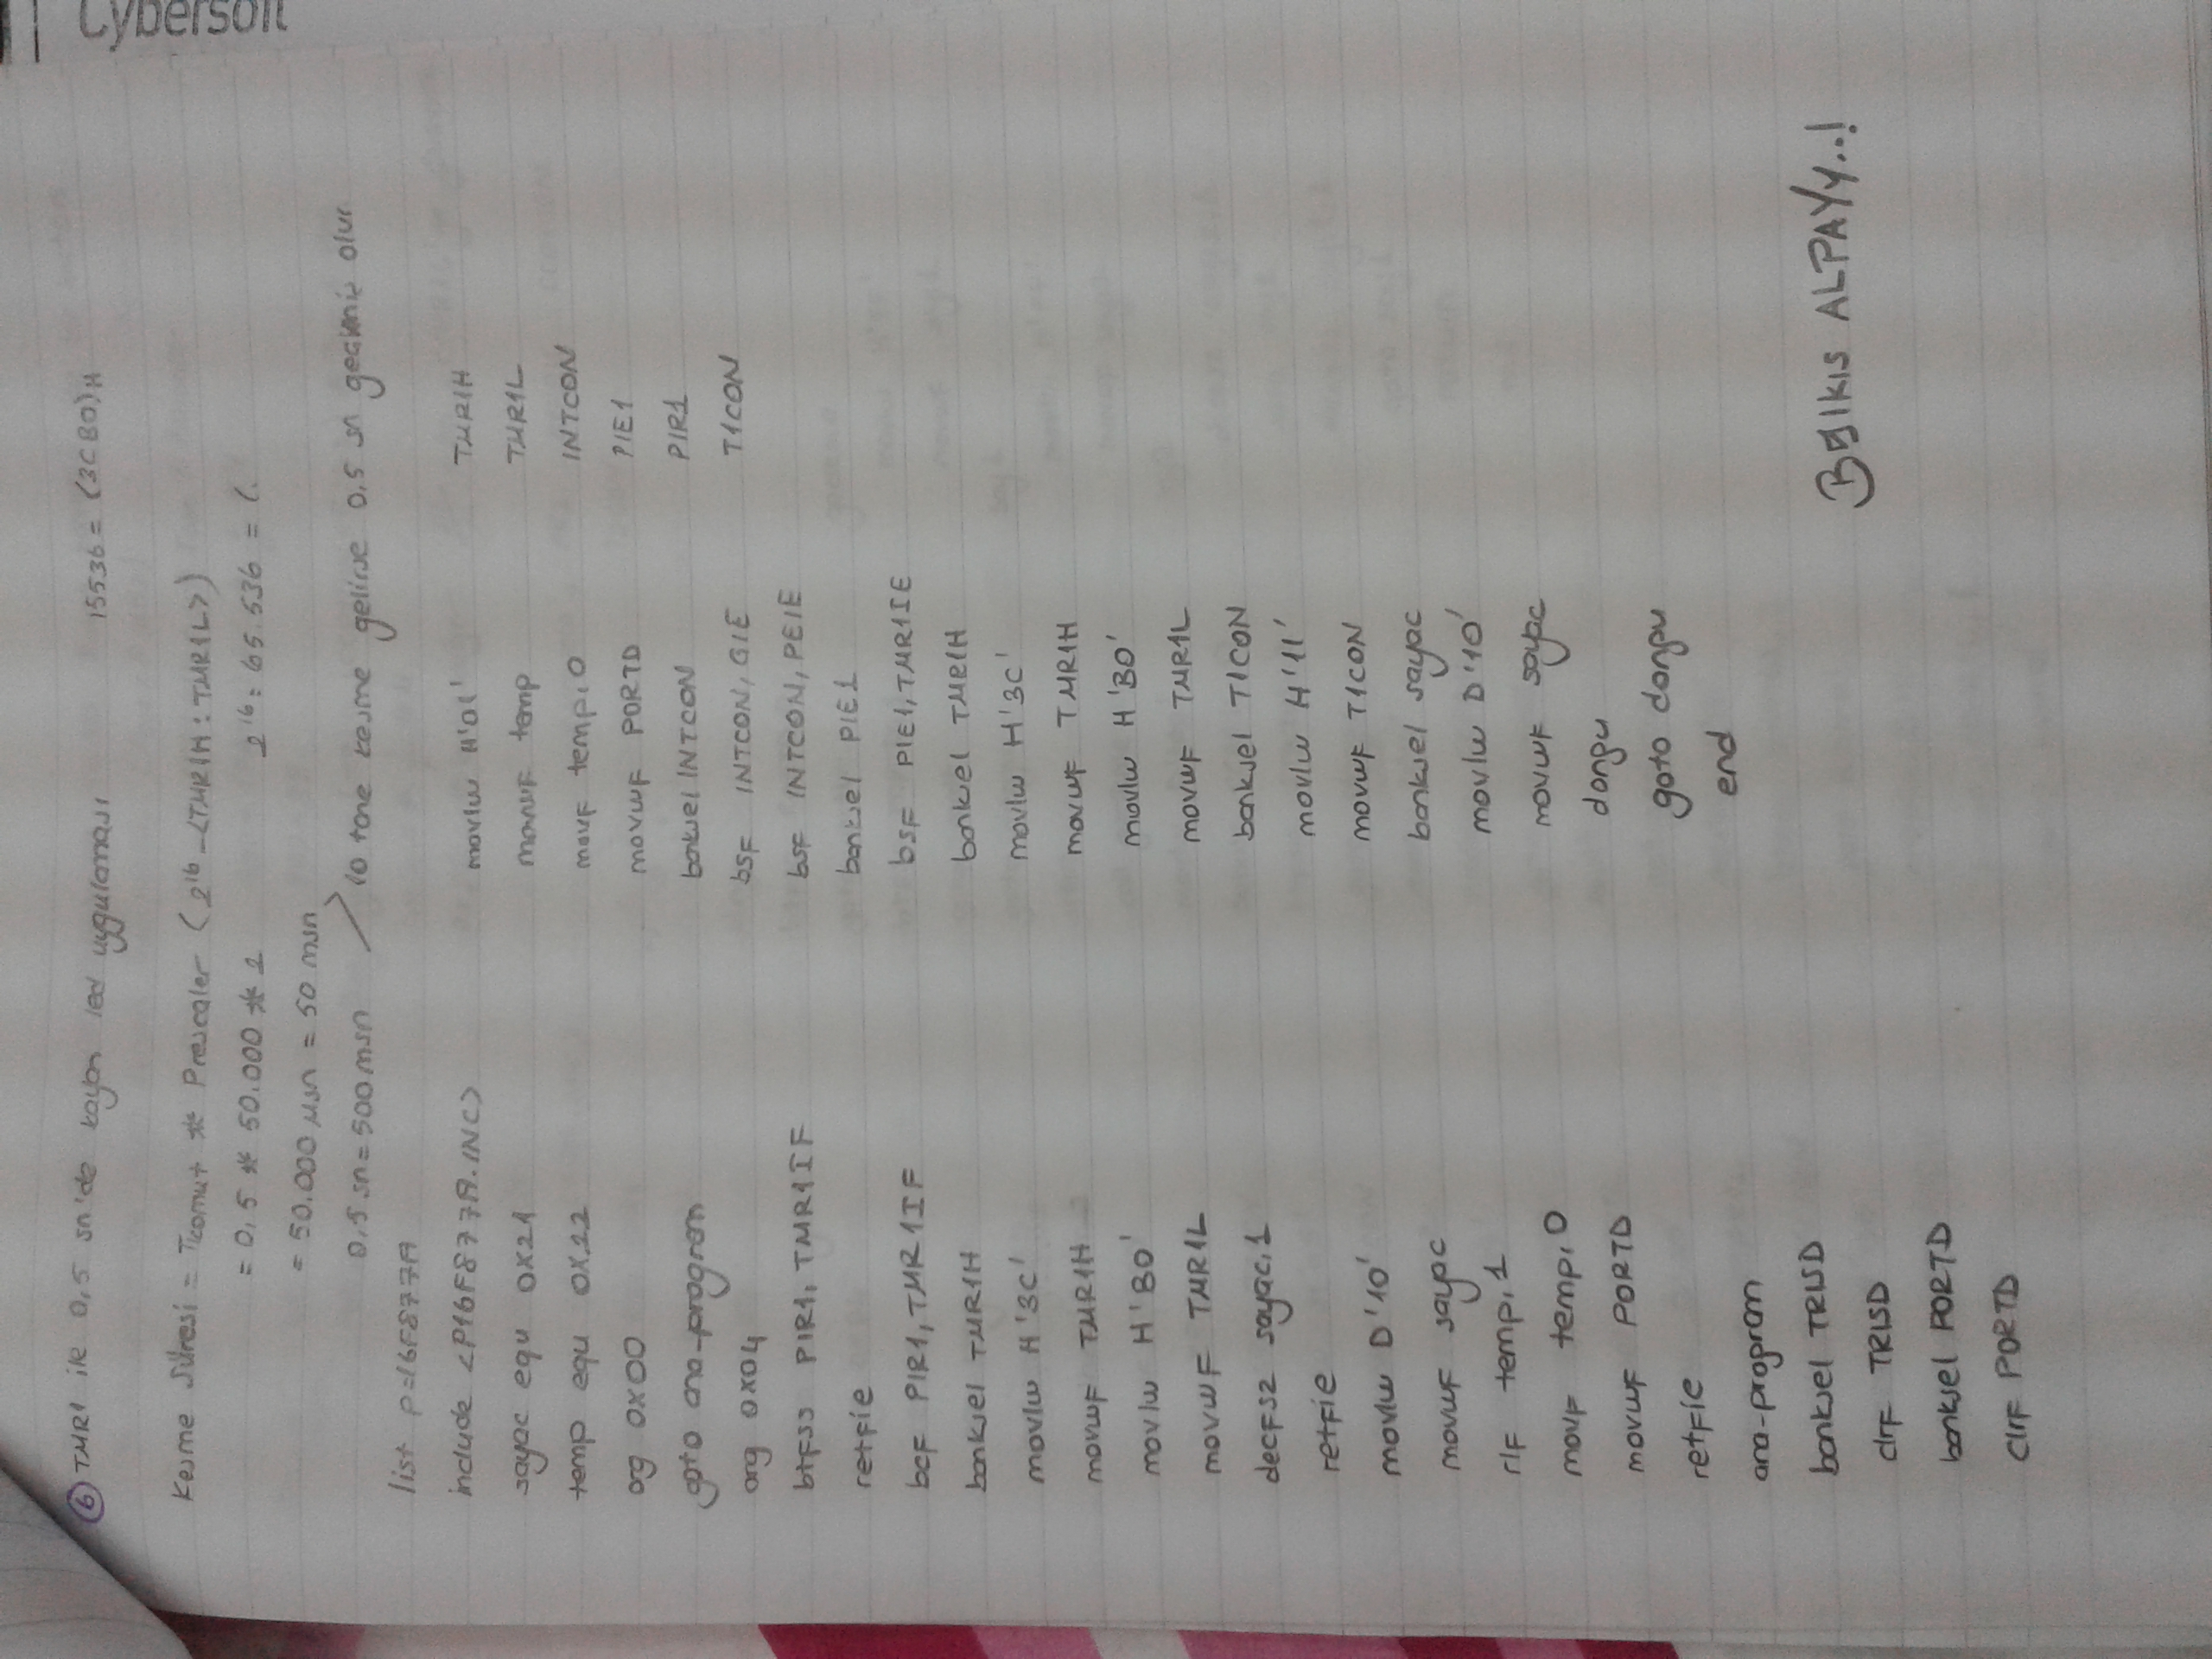 6 TMR1 ile 0,5 sn'de kayan led uygulaması
15536 = (3CB0)H
Kesme Süresi = Tkomut * Prescaler (2^16 - <TMR1H : TMR1L>)
= 0,5 * 50.000 * 2
2^16 = 65.536 = (.
= 50.000 µsn = 50 msn
0,5 sn = 500 msn
10 tane kesme gelirse 0,5 sn olur
list p=16F877A
include <P16F877A.INC>
sayac equ 0X21
temp equ 0X22
org 0X00
goto ana-program
org 0X04
btfss PIR1, TMR1IF
retfie
bcf PIR1, TMR1IF
banksel TMR1H
movlw H'3C'
movwf TMR1H
movlw H'B0'
movwf TMR1L
decfsz sayac,1
retfie
movlw D'10'
movwf sayac
rlf temp,1
movf temp,0
movwf PORTD
retfie
ana-program
banksel TRISD
clrf TRISD
banksel PORTD
clrf PORTD
movlw H'01'
movwf temp
movf temp,0
movwf PORTD
banksel INTCON
bsf INTCON, GIE
bsf INTCON, PEIE
banksel PIE1
bsf PIE1, TMR1IE
banksel TMR1H
movlw H'3C'
movwf TMR1H
movlw H'B0'
movwf TMR1L
banksel T1CON
movlw H'11'
movwf T1CON
banksel sayac
movlw D'10'
movwf sayac
dongu
goto dongu
end
TMR1H
TMR1L
INTCON
PIE1
PIR1
T1CON
Belkıs ALPAYy..!
Cybersoft